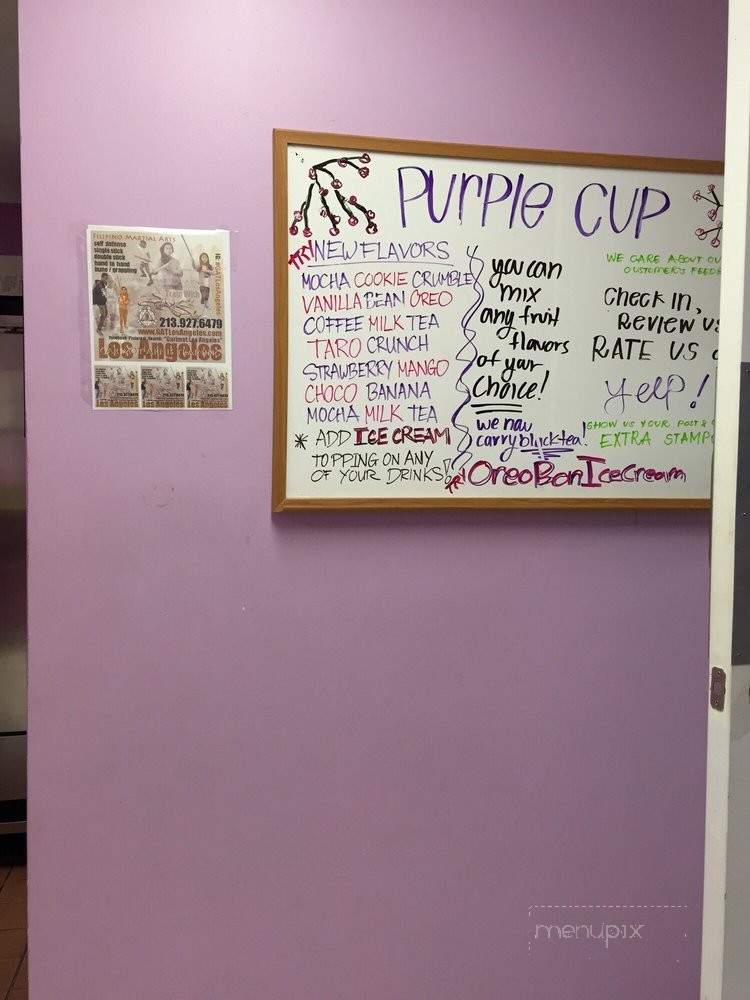 FILIPINO MARTIAL ARTS
self defense
single stick
double stick
hand to hand
213.927.6479
www.GATLosAngeles.com
Los Angeles
Los Angeles
Los Angeles
Los Angeles
PURPLE CUP
TRY NEW FLAVORS
MOCHA COOKIE CRUMBLE
VANILLA BEAN OREO
COFFEE MILK TEA
TARO CRUNCH
STRAWBERRY MANGO
CHOCO BANANA
MOCHA MILK TEA
* ADD ICE CREAM
TOPPING ON ANY
OF YOUR DRINKS!
you can
mix
any fruit
flavors
of your
choice!
we now
carry black tea!
TRY OreoBonIceCream
WE CARE ABOUT
CUSTOMER'S
Check in,
REVIEW
RATE US
yelp!
SHOW US YOUR POST &
EXTRA
menupix